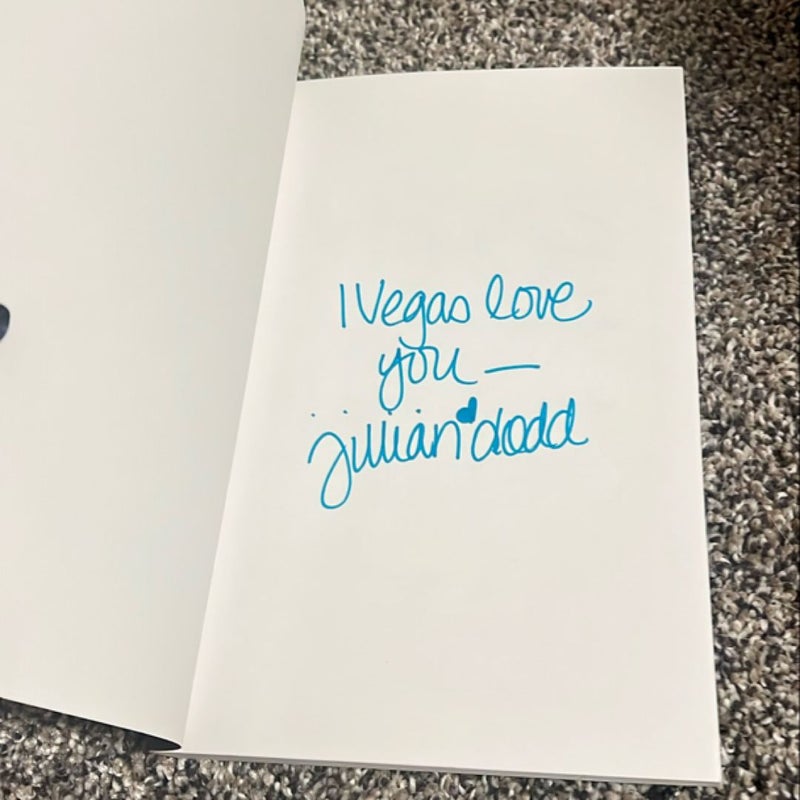 I Vegas love
you —
jillian dodd